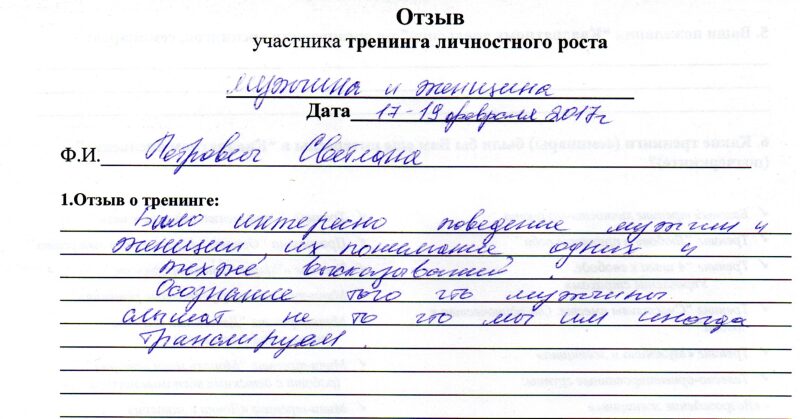 Отзыв
участника тренинга личностного роста
мужчина и женщина
Дата 17-19 февраля 2017г
Ф.И. Петровец Светлана
1.Отзыв о тренинге:
Было интересно поведение мужчин и
женщин, их понимание одних и
тех же высказываний.
Осознание того что мужчины
слышат не то что мы им иногда
транслируем.